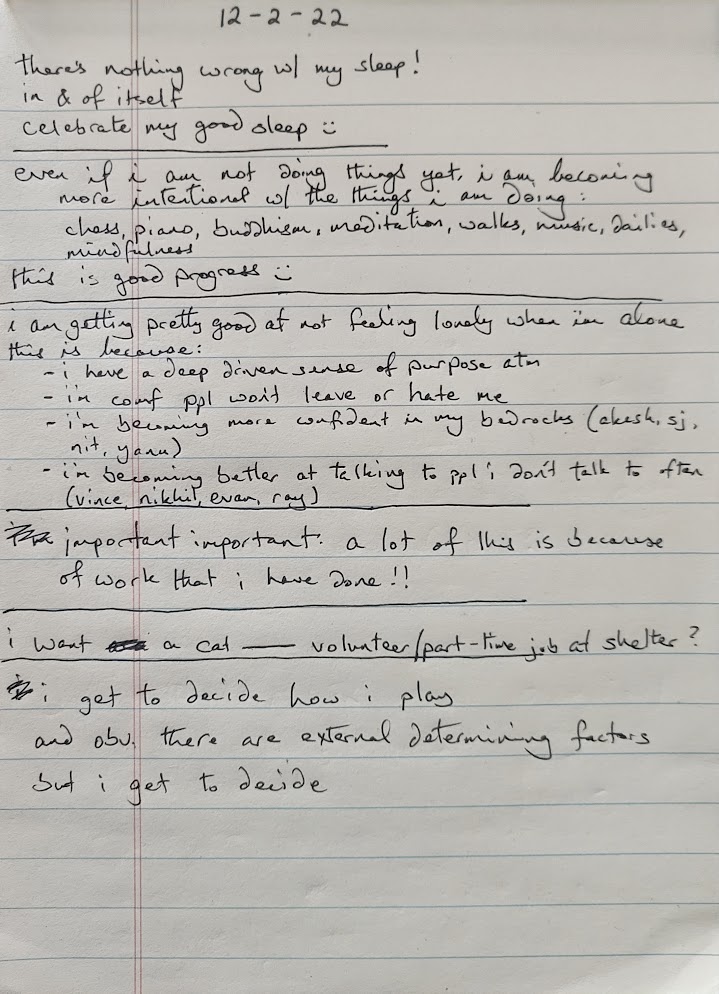 12-2-22
there's nothing wrong w/ my sleep!
in & of itself
celebrate my good sleep :)
even if i am not doing things yet, i am becoming
more intentional w/ the things i am doing:
chess, piano, buddhism, meditation, walks, music, dailies,
mindfulness
this is good progress :)
i am getting pretty good at not feeling lonely when i'm alone
this is because:
- i have a deep driven sense of purpose atm
- i'm comf ppl won't leave or hate me
- i'm becoming more confident in my bedrocks (akesh, sj,
nit, yanu)
- i'm becoming better at talking to ppl i don't talk to often
(vince, nikhit, evan, ray)
important important: a lot of this is because
of work that i have done!!
i want a cat — volunteer/part-time job at shelter?
i get to decide how i play
and obv. there are external determining factors
but i get to decide